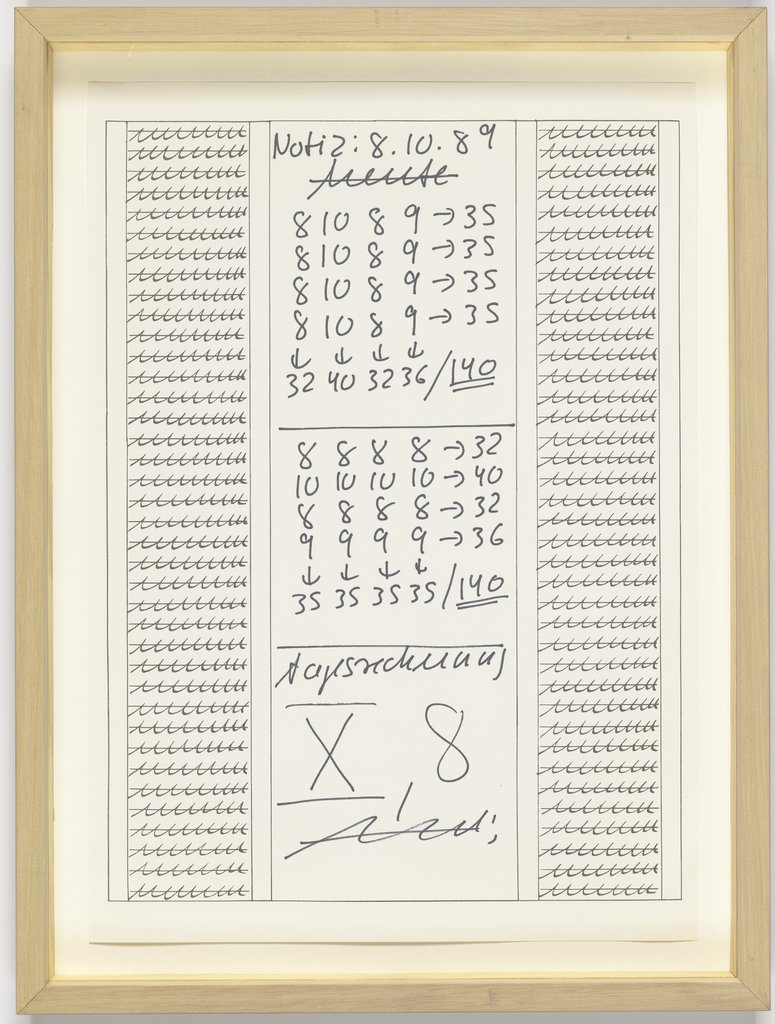 Notiz: 8.10.89
heute
8 10 8 9 → 35
8 10 8 9 → 35
8 10 8 9 → 35
8 10 8 9 → 35
↓ ↓ ↓ ↓
32 40 32 36 / 140
8 8 8 8 → 32
10 10 10 10 → 40
8 8 8 8 → 32
9 9 9 9 → 36
↓ ↓ ↓ ↓
35 35 35 35 / 140
tagesrechnung
X, 8